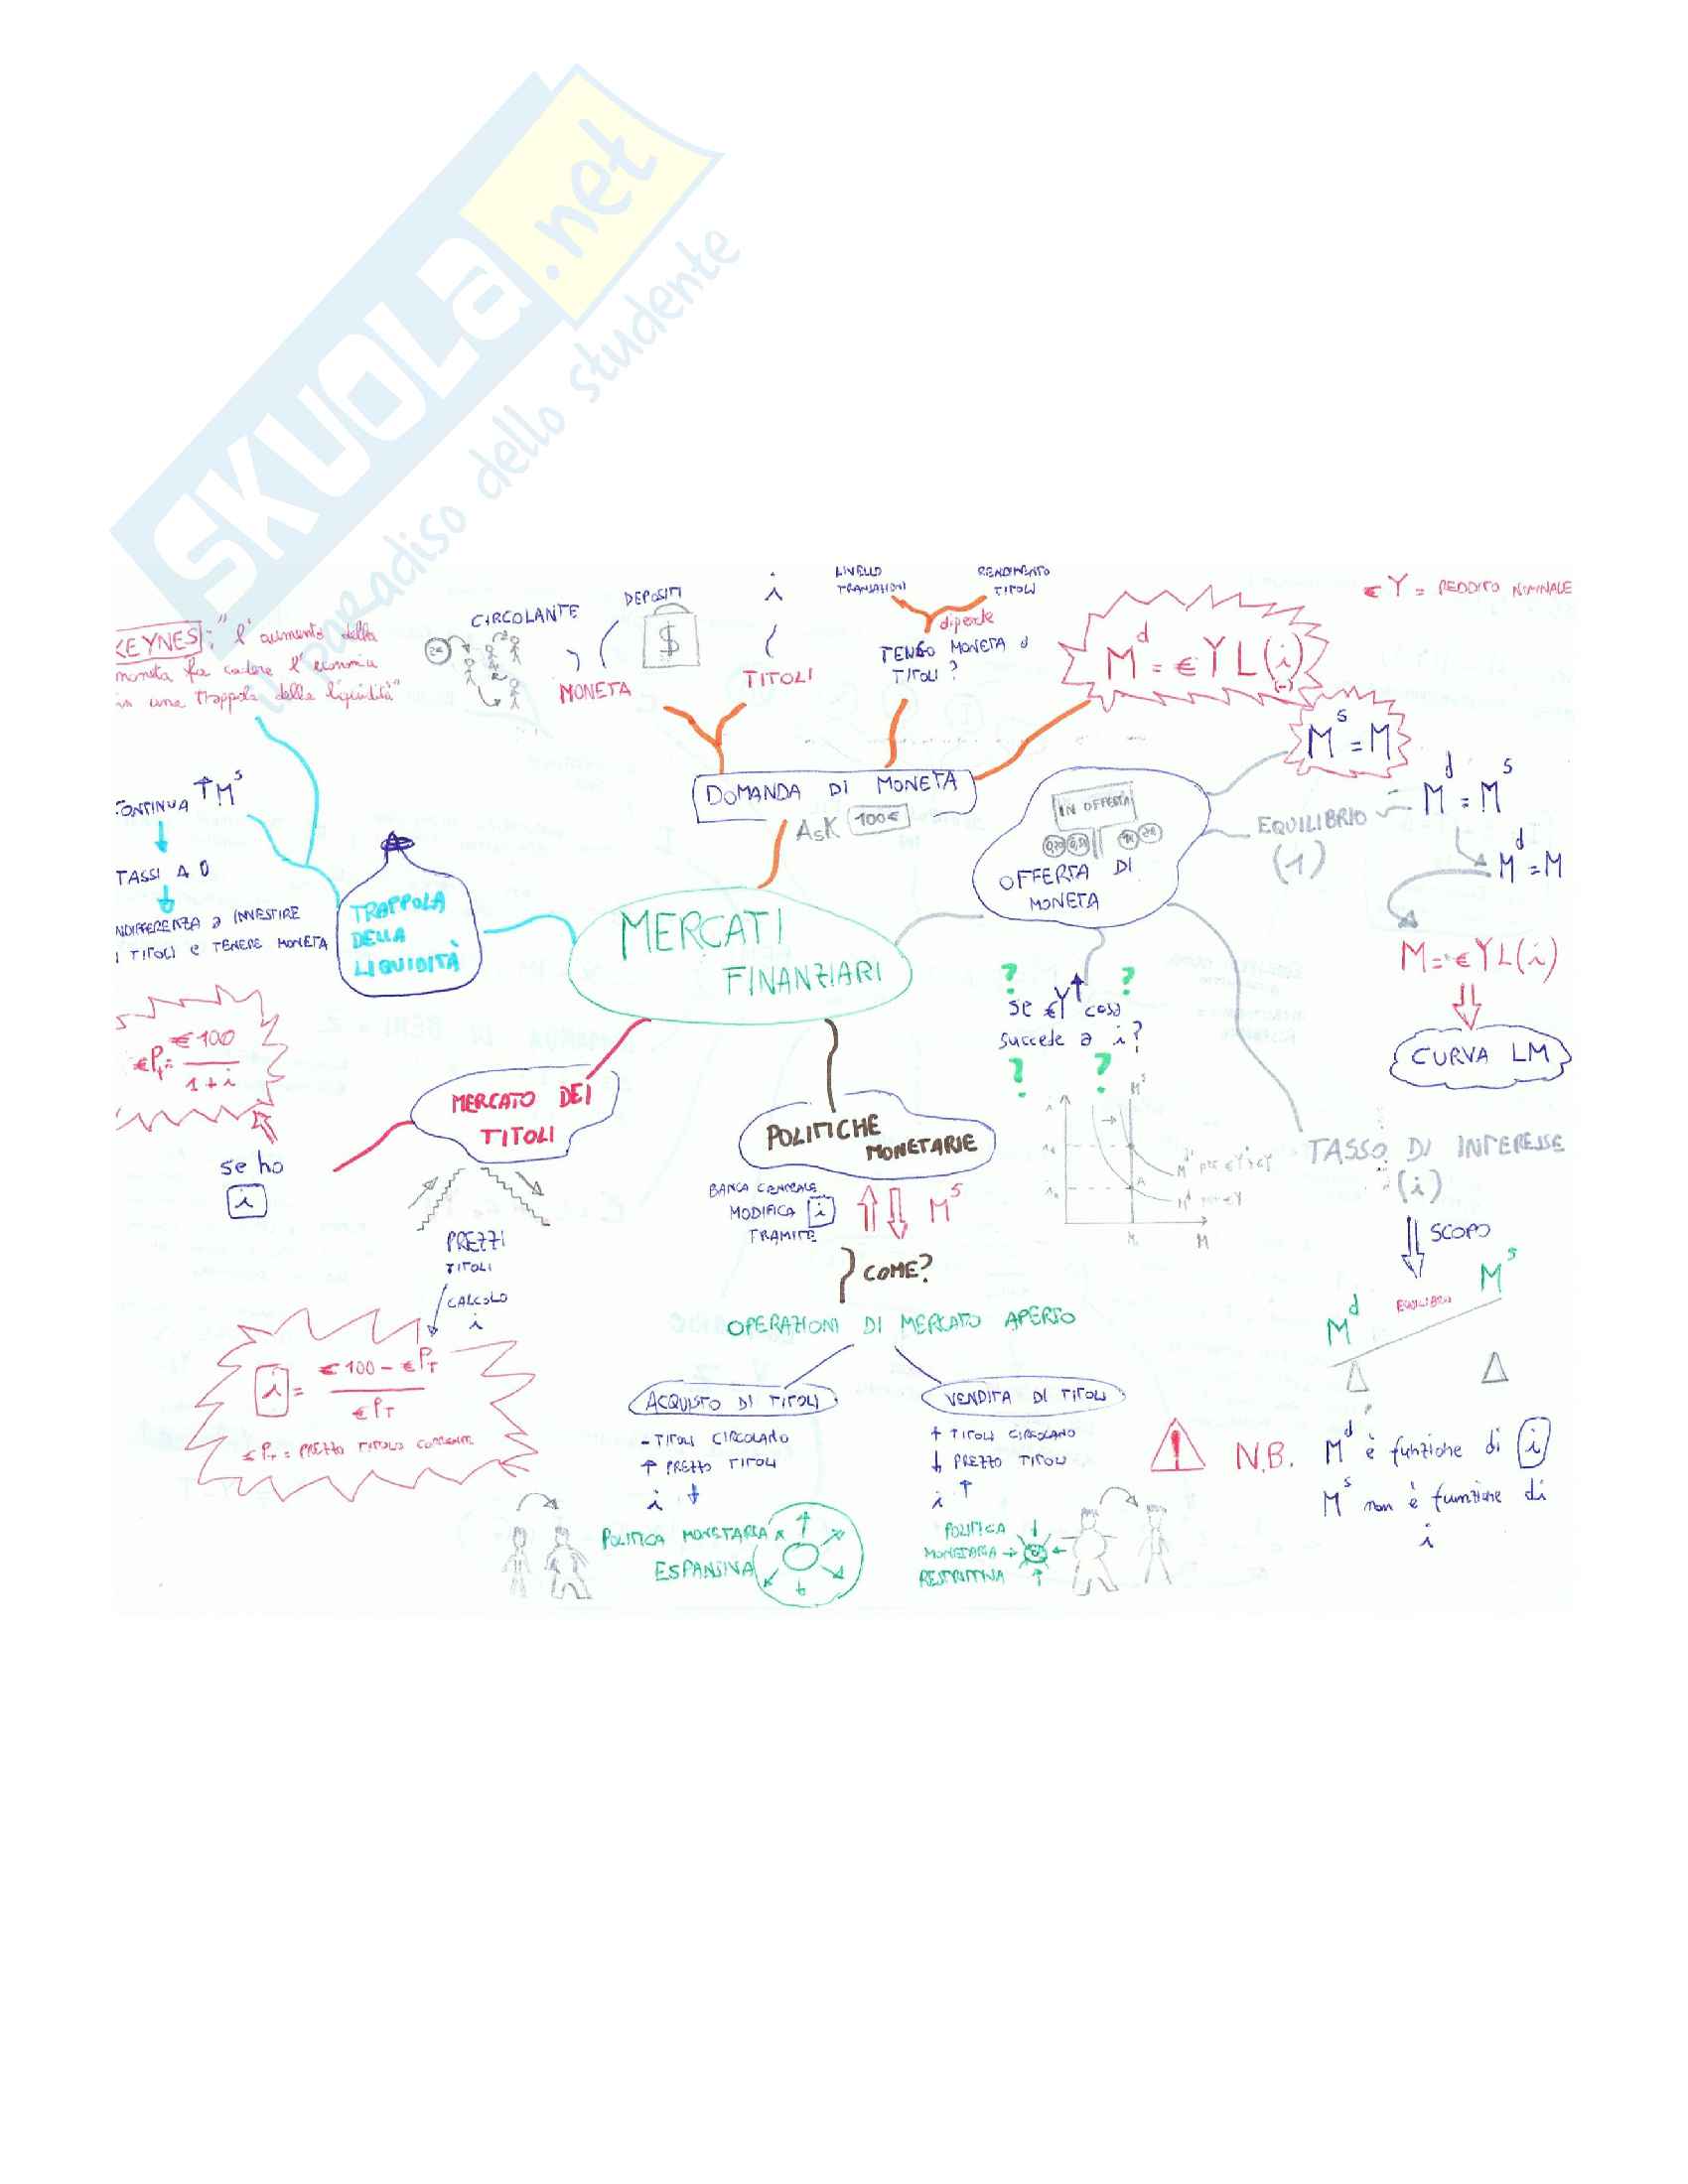 SKUOLa.net
il paradiso dello studente
KEYNES: "l'aumento della
moneta fa cadere l'economia
in una trappola della liquidità"
CONTINUA ↑M^s
TASSI A 0
INDIFFERENZA a INVESTIRE
TITOLI e TENERE MONETA
TRAPPOLA
DELLA
LIQUIDITÀ
CIRCOLANTE
2€
DEPOSITI
$
MONETA
i
TITOLI
LIVELLO
TRANSAZIONI
RENDIMENTO
TITOLI
dipende
TENGO MONETA o
TITOLI?
M^d = €Y L(i)
(-)
€Y = REDDITO NOMINALE
DOMANDA DI MONETA
ASK 100€
MERCATI
FINANZIARI
IN OFFERTA
OFFERTA DI
MONETA
M^s = M
EQUILIBRIO
(1)
M^d = M^s
M^d = M
M = €YL(i)
CURVA LM
? ?
se €Y↑ cosa
succede a i?
? ?
M^s
i
A
M
TASSO DI INTERESSE
(i)
SCOPO
M^d EQUILIBRIO M^s
N.B. M^d è funzione di i
M^s non è funzione di
i
€P_T = €100 / 1+i
se ho
i
MERCATO DEI
TITOLI
PREZZI
TITOLI
CALCOLO
i
i = €100 - €P_T / €P_T
€P_T = PREZZO TITOLO CORRENTE
POLITICHE
MONETARIE
BANCA CENTRALE
MODIFICA i
TRAMITE
↑↓ M^s
COME?
OPERAZIONI DI MERCATO APERTO
ACQUISTO DI TITOLI
- TITOLI CIRCOLANO
↑ PREZZO TITOLI
i ↓
POLITICA MONETARIA
ESPANSIVA
VENDITA DI TITOLI
+ TITOLI CIRCOLANO
↓ PREZZO TITOLI
i ↑
POLITICA
MONETARIA
RESTRITTIVA